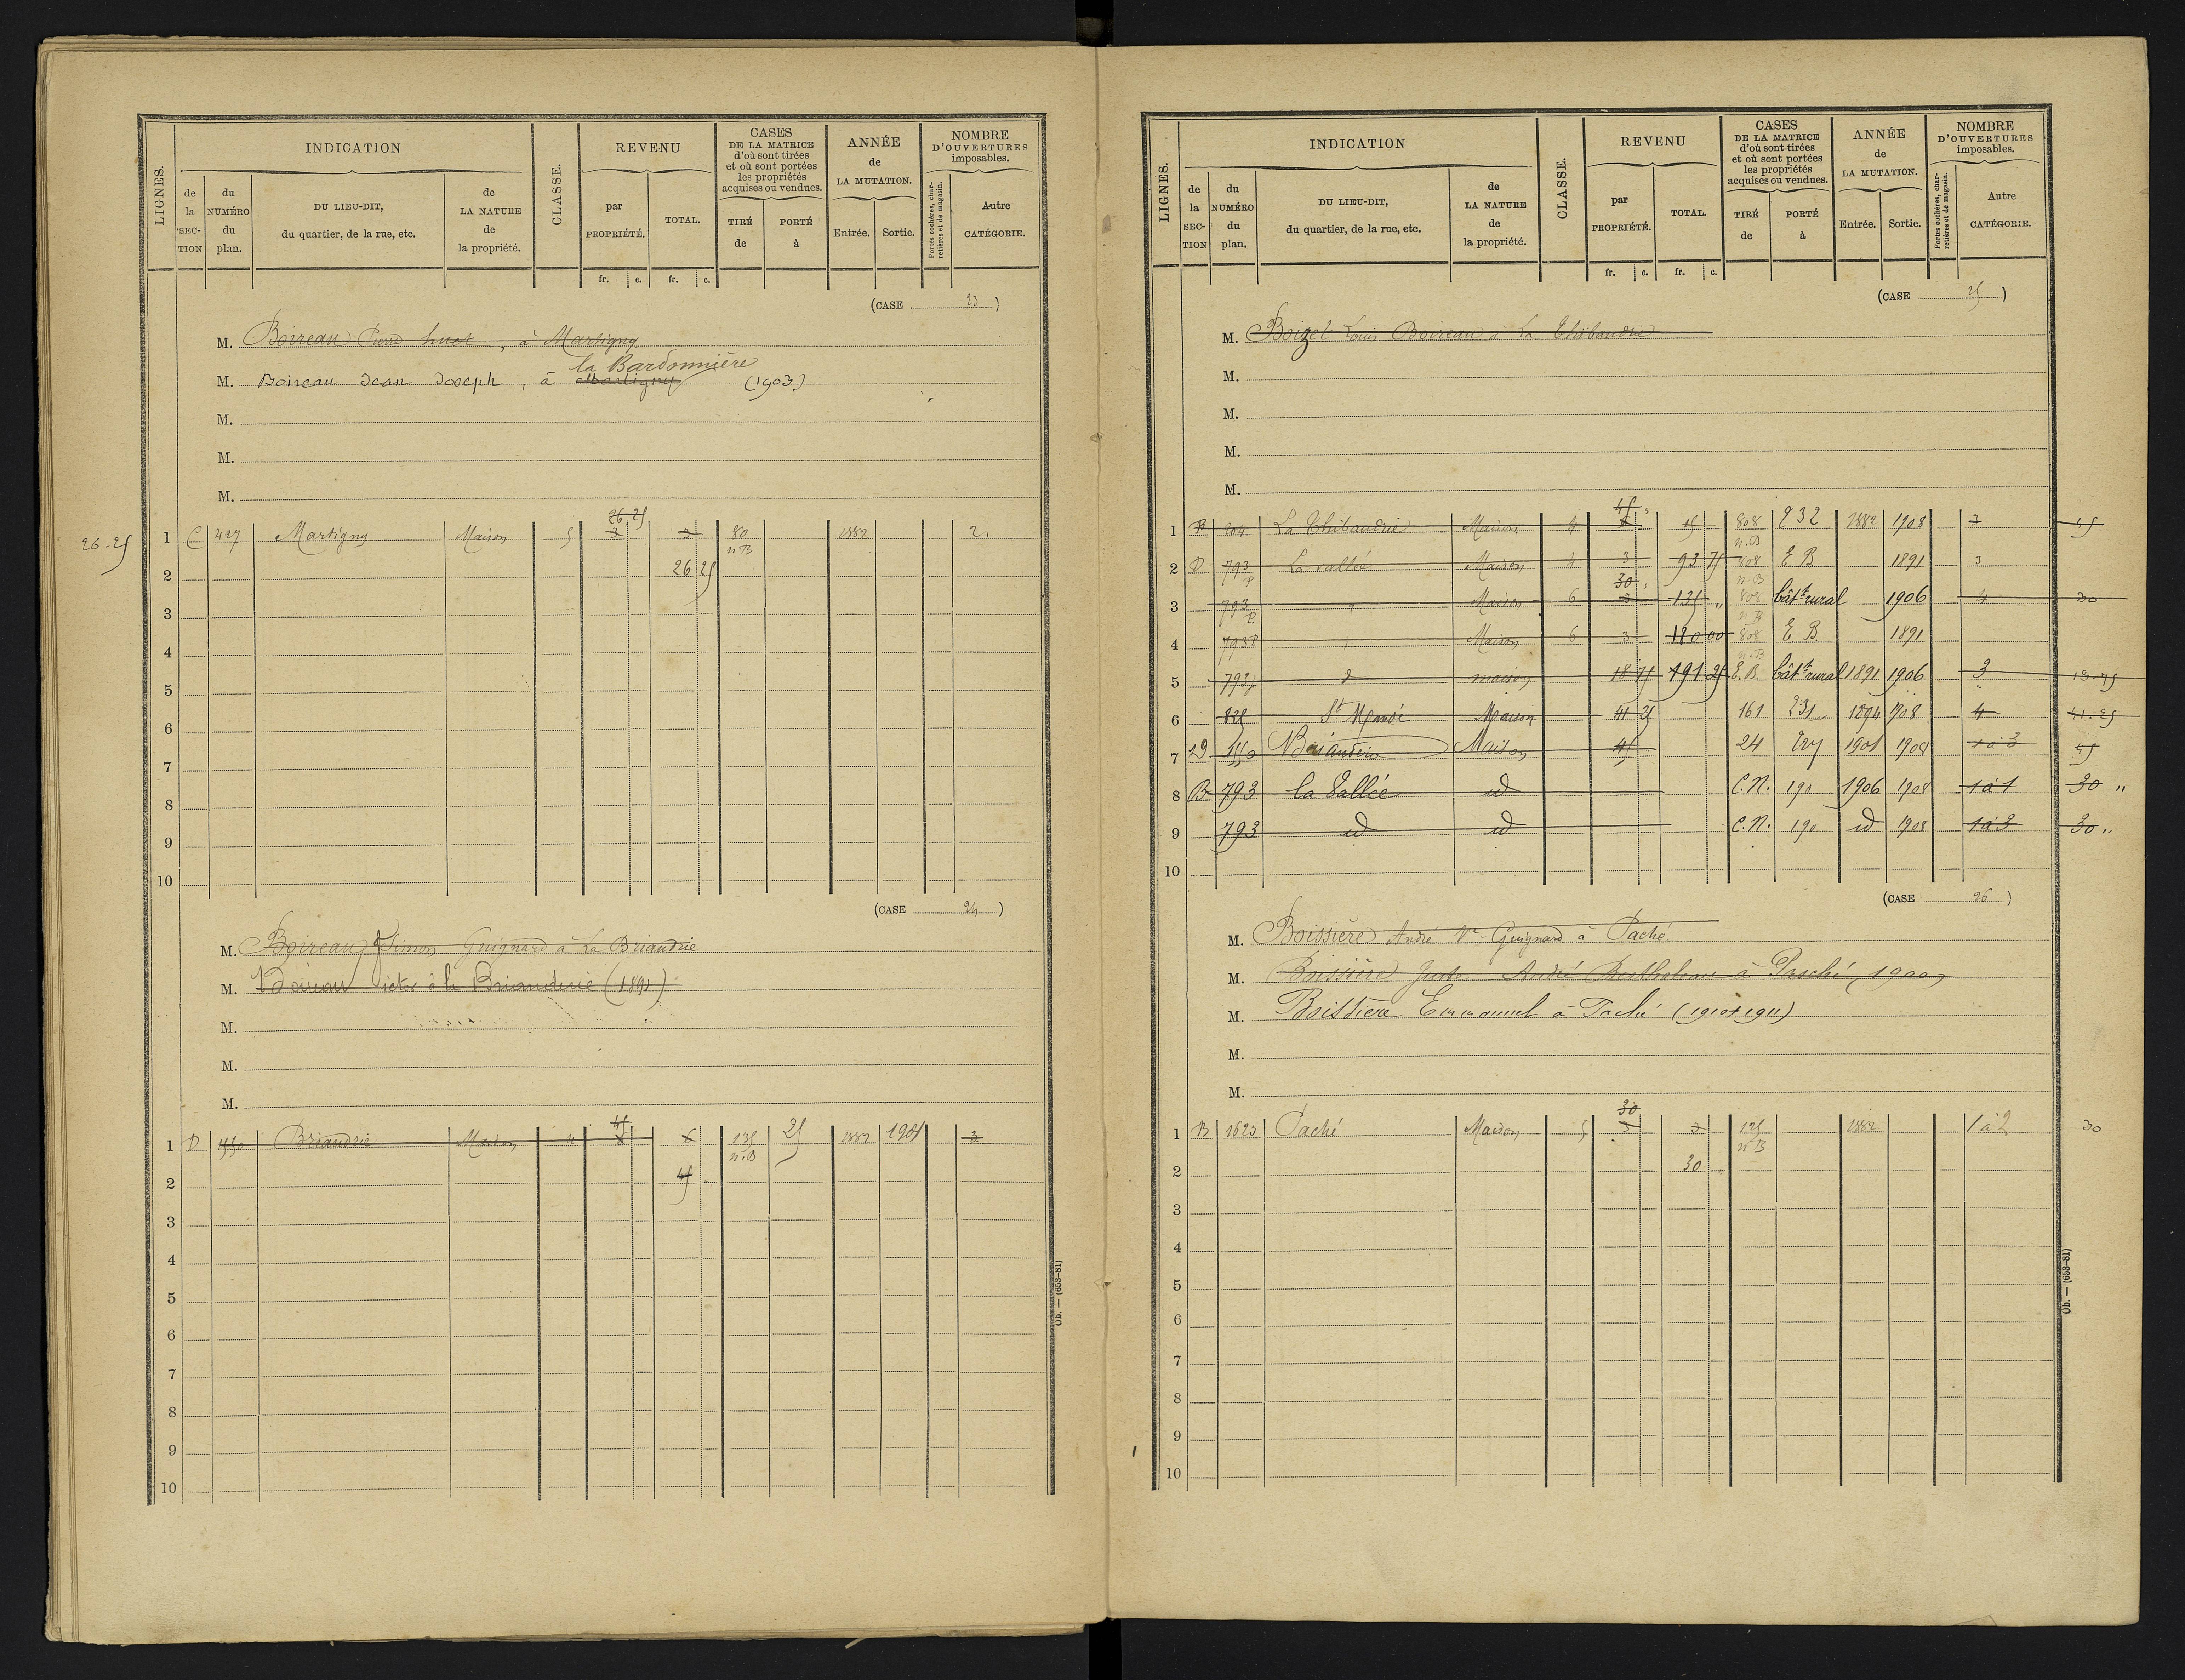 LIGNES.
INDICATION
de la SECTION
du NUMÉRO du plan.
DU LIEU-DIT, du quartier, de la rue, etc.
de LA NATURE de la propriété.
CLASSE.
REVENU
par PROPRIÉTÉ.
TOTAL.
CASES DE LA MATRICE d'où sont tirées et où sont portées les propriétés acquises ou vendues.
TIRÉ de
PORTÉ à
ANNÉE de LA MUTATION.
Entrée.
Sortie.
NOMBRE D'OUVERTURES imposables.
Portes cochères, charretières et de magasin.
Autre CATÉGORIE.
fr. c. fr. c.
(CASE 23)
M. Boireau Pierre huet, à Martigny
la Bardonnière
M. Boireau Jean Joseph, à Martigny (1903)
M.
M.
M.
26 25
26-25 1 C 427 Martigny Maison 5 3 3 80 1882 2.
n B
2 26 25
3
4
5
6
7
8
9
10
(CASE 24)
M. Boireau Simon Guignard à La Briaudrie
M. Boireau à la Briauderie (1891)
M.
M.
M.
45
1 D 450 Briaudrie Maison 4 6 6 135 25 1882 1901 3
n.B
2 45
3
4
5
6
7
8
9
10
Ob. — (653-81)
LIGNES.
INDICATION
de la SECTION
du NUMÉRO du plan.
DU LIEU-DIT, du quartier, de la rue, etc.
de LA NATURE de la propriété.
CLASSE.
REVENU
par PROPRIÉTÉ.
TOTAL.
CASES DE LA MATRICE d'où sont tirées et où sont portées les propriétés acquises ou vendues.
TIRÉ de
PORTÉ à
ANNÉE de LA MUTATION.
Entrée.
Sortie.
NOMBRE D'OUVERTURES imposables.
Portes cochères, charretières et de magasin.
Autre CATÉGORIE.
fr. c. fr. c.
(CASE 25)
M. Boizet Louis Boireau à La Thibaudrie
M.
M.
M.
M.
45
1 B 204 La Thibaudrie Maison 4 15 808 932 1882 1908 3 45
n.B
2 D 793 P La vallée Maison 4 3 93 75 808 E B 1891 3
30 n.B
3 793 P. Maison 6 3 135 " 808 bât.t rural 1906 4 30
n B
4 793 P Maison 6 3 180 00 808 E B 1891
n.B
5 793 P maison 18 75 191 25 E.B. bât.t rural 1891 1906 3 18.75
6 825 Maison 41 25 161 231 1894 1908 4 41.25
7 D Briauderie Maison 45 24 1901 1908 1 à 3 45
8 B 793 la Vallée id C.N. 190 1906 1908 1 à 1 30 "
9 793 id id C.N. 190 id 1908 1 à 3 30 "
10
(CASE 26)
M. Boissière André Ve Guignard à Paché
M. Boissière André Bertholeau à Pasché 1900
M. Boissière Emmanuel à Paché (1910+1911)
M.
M.
30
1 B 1623 Paché Maison 5 3 3 125 1882 1 à 2 30
n B
2 30
3
4
5
6
7
8
9
10
Ob. — (653-81)